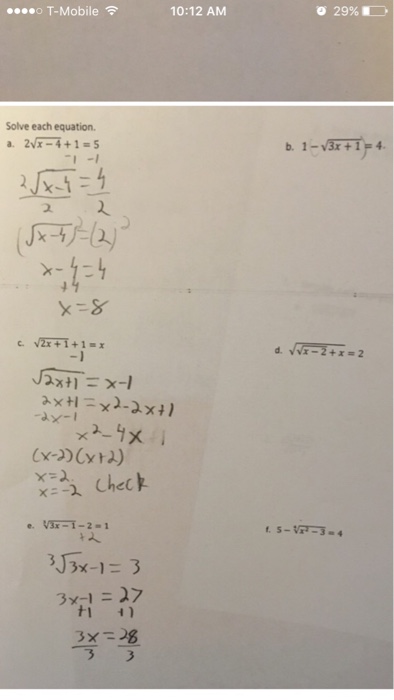 T-Mobile 10:12 AM 29%
Solve each equation.
a. 2√x-4 + 1 = 5
-1 -1
2√x-4 = 4
2 2
(√x-4)² = (2)²
x-4=4
+4
x=8
b. 1-√3x+1 = 4.
c. √2x+1 + 1 = x
-1
√2x+1 = x-1
2x+1 = x2-2x+1
-2x-1
x²-4x
(x-2)(x+2)
x=2
x=-2 Check
d. √√x-2+x = 2
e. ∛3x-1 - 2 = 1
+2
3√3x-1 = 3
3x-1 = 27
+1 +1
3x = 28
3 3